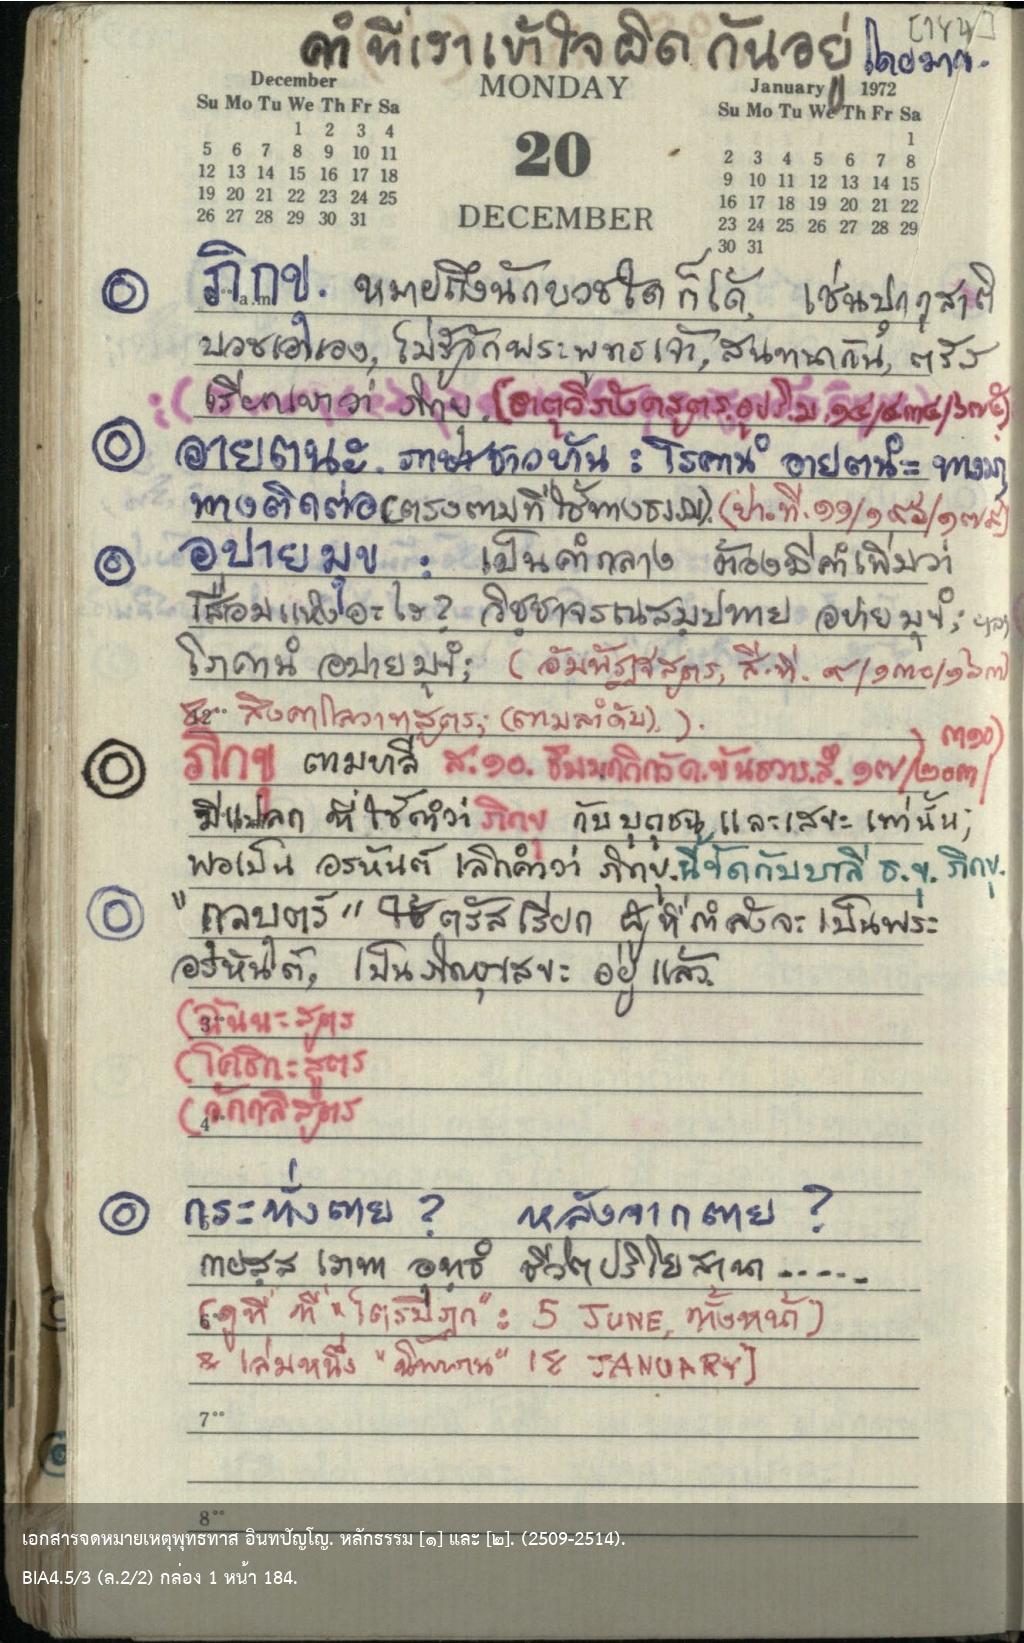 คำที่เราเข้าใจผิดกันอยู่ โดยมาก.
[184]
December
Su Mo Tu We Th Fr Sa
1 2 3 4
5 6 7 8 9 10 11
12 13 14 15 16 17 18
19 20 21 22 23 24 25
26 27 28 29 30 31
MONDAY
20
DECEMBER
January 1972
Su Mo Tu We Th Fr Sa
1
2 3 4 5 6 7 8
9 10 11 12 13 14 15
16 17 18 19 20 21 22
23 24 25 26 27 28 29
30 31
ภิกขุ. หมายถึงนักบวชใดก็ได้, เช่นปุกกุสาติ
บวชเอาเอง, ไม่รู้จักพระพุทธเจ้า, สนทนากัน, ตรัส
เรียกเขาว่า ภิกขุ. (ธาตุวิภังคสูตร อุปริ.ม. ๑๔/๔๓๔/๖๗๕)
อายตนะ. ภาษาชาวบ้าน : โรคานํ อายตนํ = ทางมา,
ทางติดต่อ (ตรงตามที่ใช้ทางธรรม). (ปา.ที. ๑๑/๑๙๖/๑๗๘)
อปายมุข : เป็นคำกลาง ต้องมีคำเพิ่มว่า
เสื่อมแห่งอะไร? วิชฺชาจรณสมฺปทาย อปายมุขํ; ฯลฯ
โภคานํ อปายมุขํ; (อัมพัฏฐสูตร, สี.ที. ๙/๑๓๐/๑๖๓)
& สิงคาโลวาทสูตร; (ตามลำดับ). ).
ภิกขุ ตามบาลี ส.๑๐. ธัมมกถิกวัค.ขันธวาร.สํ. ๑๗/๒๐๓/๓๑๐)
มีแปลก ที่ใช้คำว่า ภิกขุ กับบุถุชน และเสขะ เท่านั้น;
พอเป็น อรหันต์ เลิกคำว่า ภิกขุ. นี้ขัดกับบาลี ธ.ขุ. ภิกขุ.
"กุลบุตร" ใช้ตรัสเรียก ผู้ที่กำลังจะเป็นพระ
อรหันต์, เป็นภิกษุเสขะ อยู่แล้ว.
(ฉันนะสูตร
3
(โคธิกะสูตร
(วักกลิสูตร
4
กระทั่งตาย ? หลังจากตาย ?
กายสฺส เภทา อุทฺธํ ชีวิตปริโยสานา .....
(ดูที่ ที่ "ไตรปิฎก" : 5 JUNE, ทั้งหน้า)
& เล่มหนึ่ง "นิพพาน" 18 JANUARY]
7
8
เอกสารจดหมายเหตุพุทธทาส อินทปัญโญ. หลักธรรม [๑] และ [๒]. (2509-2514).
BIA4.5/3 (ล.2/2) กล่อง 1 หน้า 184.